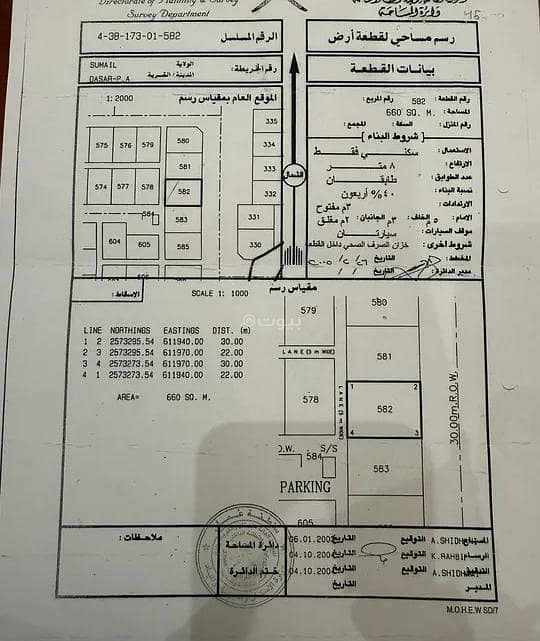 Directorate of Planning & Survey
Survey Department
وزارة
4-38-173-01-582
الرقم المسلسل
رسم مساحي لقطعة أرض
SUMAIL
DASAR-P.A
الولاية
المدينة / القرية
رقم الخريطة:
بيانات القطعة
1: 2000
الموقع العام بمقياس رسم
رقم القطعة: 582 المربع:
المساحة: 660 SQ. M.
رقم المنزل: السكة: المجمع:
شروط البناء
الاستعمال: سكني فقط
الارتفاع: ٨ متر
عدد الطوابق: طابقان
نسبة البناء: ٤٠% أربعون
الارتدادات: ٣م مفتوح
الامام: ٥م الخلف: ٣م الجانبان: ٢م مغلق
موقف السيارات: سيارتان
شروط أخرى: خزان الصرف الصحي داخل القطعة
المخطط: التاريخ
مدير الدائرة: التاريخ
335
334
333
332
331
330
575 576 579 580
581
574 577 578 582
584 583
604 605 585
الشمال
الاسقاط:
SCALE 1: 1000
مقياس رسم
LINE NORTHINGS EASTINGS DIST. (m)
1 2 2573295.54 611940.00 30.00
2 3 2573295.54 611970.00 22.00
3 4 2573273.54 611970.00 30.00
4 1 2573273.54 611940.00 22.00
AREA= 660 SQ. M.
579
580
LANE (3 m WIDE)
581
578
LANE (3 m WIDE)
1 2
582
4 3
30.00m R.O.W.
O.W.
S/S
584
583
PARKING
605
بيوت@
ملاحظات:
دائرة المساحة
ختم الدائرة
06.01.2002 التاريخ
04.10.200 التاريخ
04.10.200 التاريخ
التاريخ
التوقيع A.SHIDH المساح
التوقيع K.RAHBI الرسام
التوقيع A.SHIDH التدقيق
المدير
M.O.H.E.W SD/7